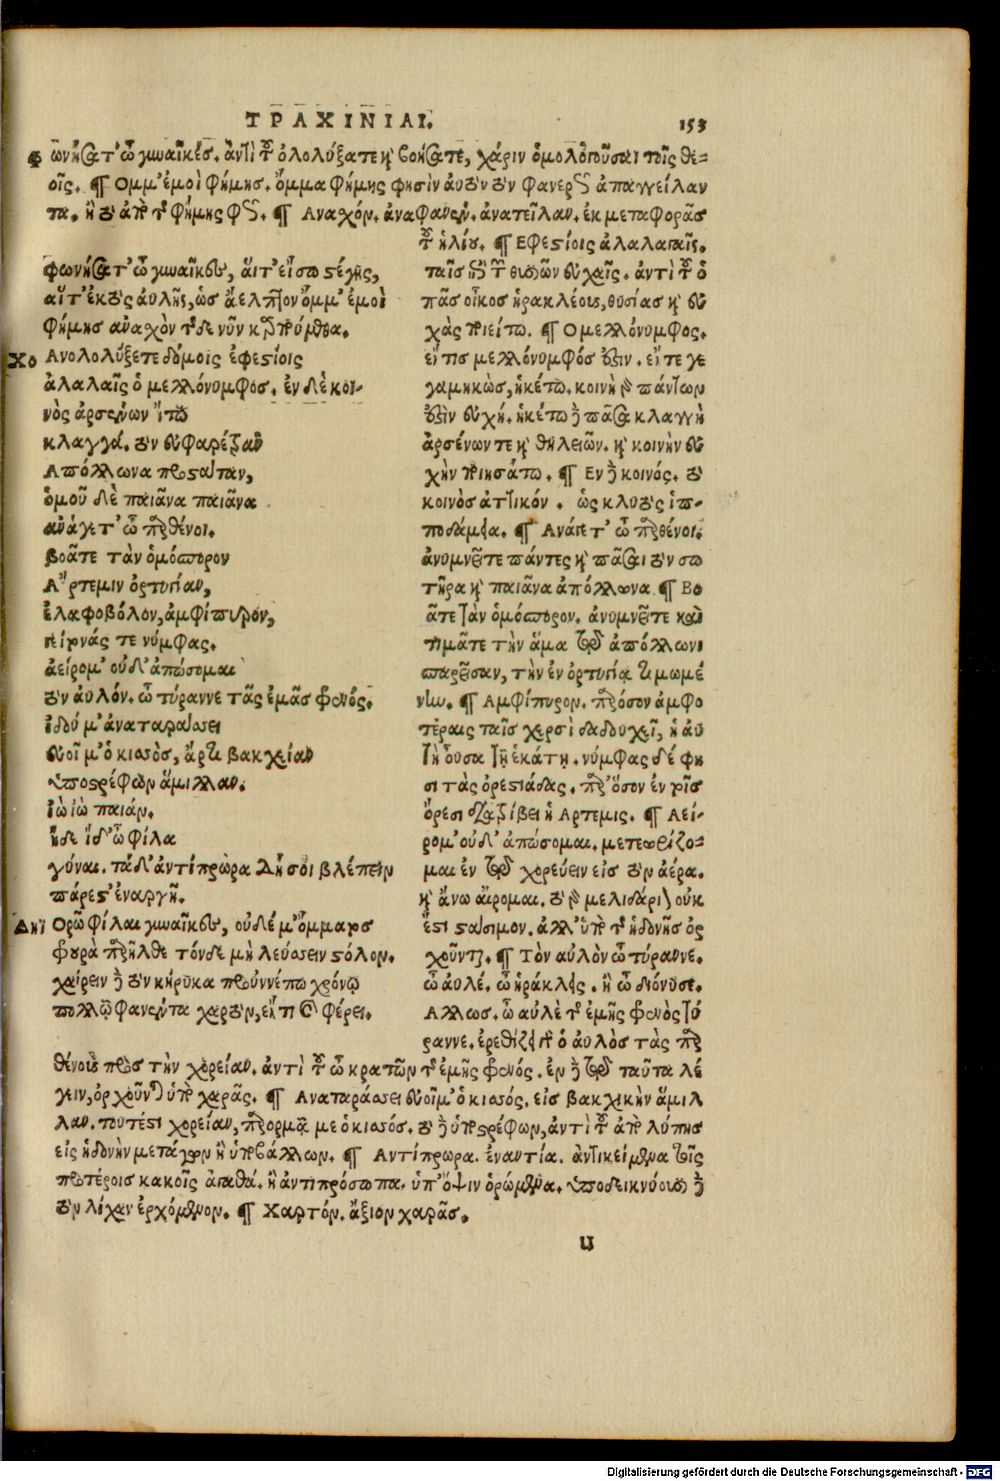 ΤΡΑΧΙΝΙΑΙ. 153
φωνήσατ' ὦ γυναῖκες. ἀντὶ τοῦ ὀλολύξατε καὶ βοήσατε, χάριν ὁμολογοῦσαι τοῖς θε-
οῖς. ¶ Ὄμμ' ἐμοὶ φήμης. ὄμμα φήμης φησὶν αὐτὸν τὸν φανερῶς ἀπαγγείλαν
τα. ἢ τὸ ἀπὸ τῆς φήμης φῶς. ¶ Ἀνασχόν. ἀναφανέν. ἀνατεῖλαν. ἐκ μεταφορᾶς
τοῦ ἡλίου. ¶ Ἐφεστίοις ἀλαλαγαῖς.
ταῖς ἐπὶ τῶν θυσιῶν εὐχαῖς. ἀντὶ τοῦ ὁ
πᾶς οἶκος ἡρακλέους, θυσίας καὶ εὐ
χὰς ποιείτω. ¶ Ὁ μελλόνυμφος.
εἴ τις μελλόνυμφός ἐστιν. εἴτε γε
γαμηκὼς, ἡκέτω. κοινὴ γὰρ πάντων
ἐστὶν εὐχή. ἡκέτω δὲ πᾶσα κλαγγὴ
ἀρσένων τε καὶ θηλειῶν. καὶ κοινὴν εὐ
χὴν ποιησάτω. ¶ Ἐν δὲ κοινός. τὸ
κοινὸς ἀττικόν. ὡς κλυτὸς ἱπ-
ποδάμεια. ¶ Ἀνάγετ' ὦ παρθένοι.
ἀνυμνεῖτε πάντες καὶ πᾶσαι τὸν σω
τῆρα καὶ παιᾶνα ἀπόλλωνα. ¶ Βο
ᾶτε τὰν ὁμόσπορον. ἀνυμνεῖτε καὶ
τιμᾶτε τὴν ἅμα τῷ ἀπόλλωνι
σπαρεῖσαν, τὴν ἐν ὀρτυγίᾳ τιμωμέ
νην. ¶ Ἀμφίπυρον. παρόσον ἀμφο
τέραις ταῖς χερσὶ δᾳδουχεῖ, ἡ αὐ
τὴ οὖσα τῇ ἑκάτῃ. νύμφας δέ φη
σι τὰς ὀρεστιάδας. παρ' ὅσον ἐν τοῖς
ὄρεσι διατρίβει ἡ Ἄρτεμις. ¶ Ἀεί-
ρομ' οὐδ' ἀπώσομαι. μετεωρίζο-
μαι ἐν τῷ χορεύειν εἰς τὸν ἀέρα.
καὶ ἄνω αἴρομαι. τὸ γὰρ μελιδάριον οὐκ
ἔστι στάσιμον. ἀλλ' ὑπὸ τῆς ἡδονῆς ὀρ
χοῦνται. ¶ Τὸν αὐλὸν ὦ τύραννε.
ὦ αὐλέ. ὦ ἡράκλεις. ἢ ὦ διόνυσε.
Ἄλλως. ὦ αὐλὲ τῆς ἐμῆς φρενὸς τύ
ραννε. ἐρεθίζει γὰρ ὁ αὐλὸς τὰς παρ
φωνήσατ' ὦ γυναῖκες, αἵτ' εἴσω στέγης,
αἵτ' ἐκτὸς αὐλῆς, ὡς ἄελπτον ὄμμ' ἐμοὶ
φήμης ἀνασχὸν τῆσδε νῦν καρπούμεθα.
Χο Ἀνολολύξετε δόμοις ἐφεστίοις
ἀλαλαῖς ὁ μελλόνυμφος. ἐν δὲ κοι-
νὸς ἀρσένων ἴτω
κλαγγά. τὸν εὐφαρέτραν
Ἀπόλλωνα προστάταν,
ὁμοῦ δὲ παιᾶνα παιᾶνα
ἀνάγετ' ὦ παρθένοι.
βοᾶτε τὰν ὁμόσπορον
Ἄρτεμιν ὀρτυγίαν,
ἐλαφοβόλον, ἀμφίπυρον,
γείτονάς τε νύμφας.
ἀείρομ' οὐδ' ἀπώσομαι
τὸν αὐλόν. ὦ τύραννε τᾶς ἐμᾶς φρενός.
ἰδού μ' ἀναταράσσει
εὐοῖ μ' ὁ κισσὸς, ἄρτι βακχείαν
ὑποστρέφων ἅμιλλαν.
ἰὼ ἰὼ παιάν.
ἴδε ἴδ' ὦ φίλα
γύναι. τάδ' ἀντίπρωρα δή σοι βλέπειν
πάρεστ' ἐναργῆ.
Δηϊ Ὁρῶ φίλαι γυναῖκες, οὐδέ μ' ὄμματος
φρουρὰ παρῆλθε τόνδε μὴ λεύσσειν στόλον.
χαίρειν δὲ τὸν κήρυκα προὐννέπω χρόνῳ
πολλῷ φανέντα χαρτὸν, εἴ τι καὶ φέρει.
θένους πρὸς τὴν χορείαν. ἀντὶ τοῦ ὦ κρατῶν τῆς ἐμῆς φρενός. ἐν δὲ τῷ ταῦτα λέ
γειν, ὀρχοῦνται ὑπὸ χαρᾶς. ¶ Ἀναταράσσει εὐοῖ μ' ὁ κισσός. εἰς βακχικὴν ἅμιλ
λαν. τουτέστι χορείαν, παρορμᾷ με ὁ κισσός. τὸ δὲ ὑποστρέφων, ἀντὶ τοῦ ἀπὸ λύπης
εἰς ἡδονὴν μετάγων ἢ ὑποβάλλων. ¶ Ἀντίπρωρα. ἐναντία. ἀντικείμενα τοῖς
προτέροις κακοῖς ἀγαθά. ἢ ἀντιπρόσωπα. ὑπ' ὄψιν ὁρώμενα. ὑποδεικνύουσι δὲ
τὸν λίχαν ἐρχόμενον. ¶ Χαρτόν. ἄξιον χαρᾶς.
u
Digitalisierung gefördert durch die Deutsche Forschungsgemeinschaft - DFG